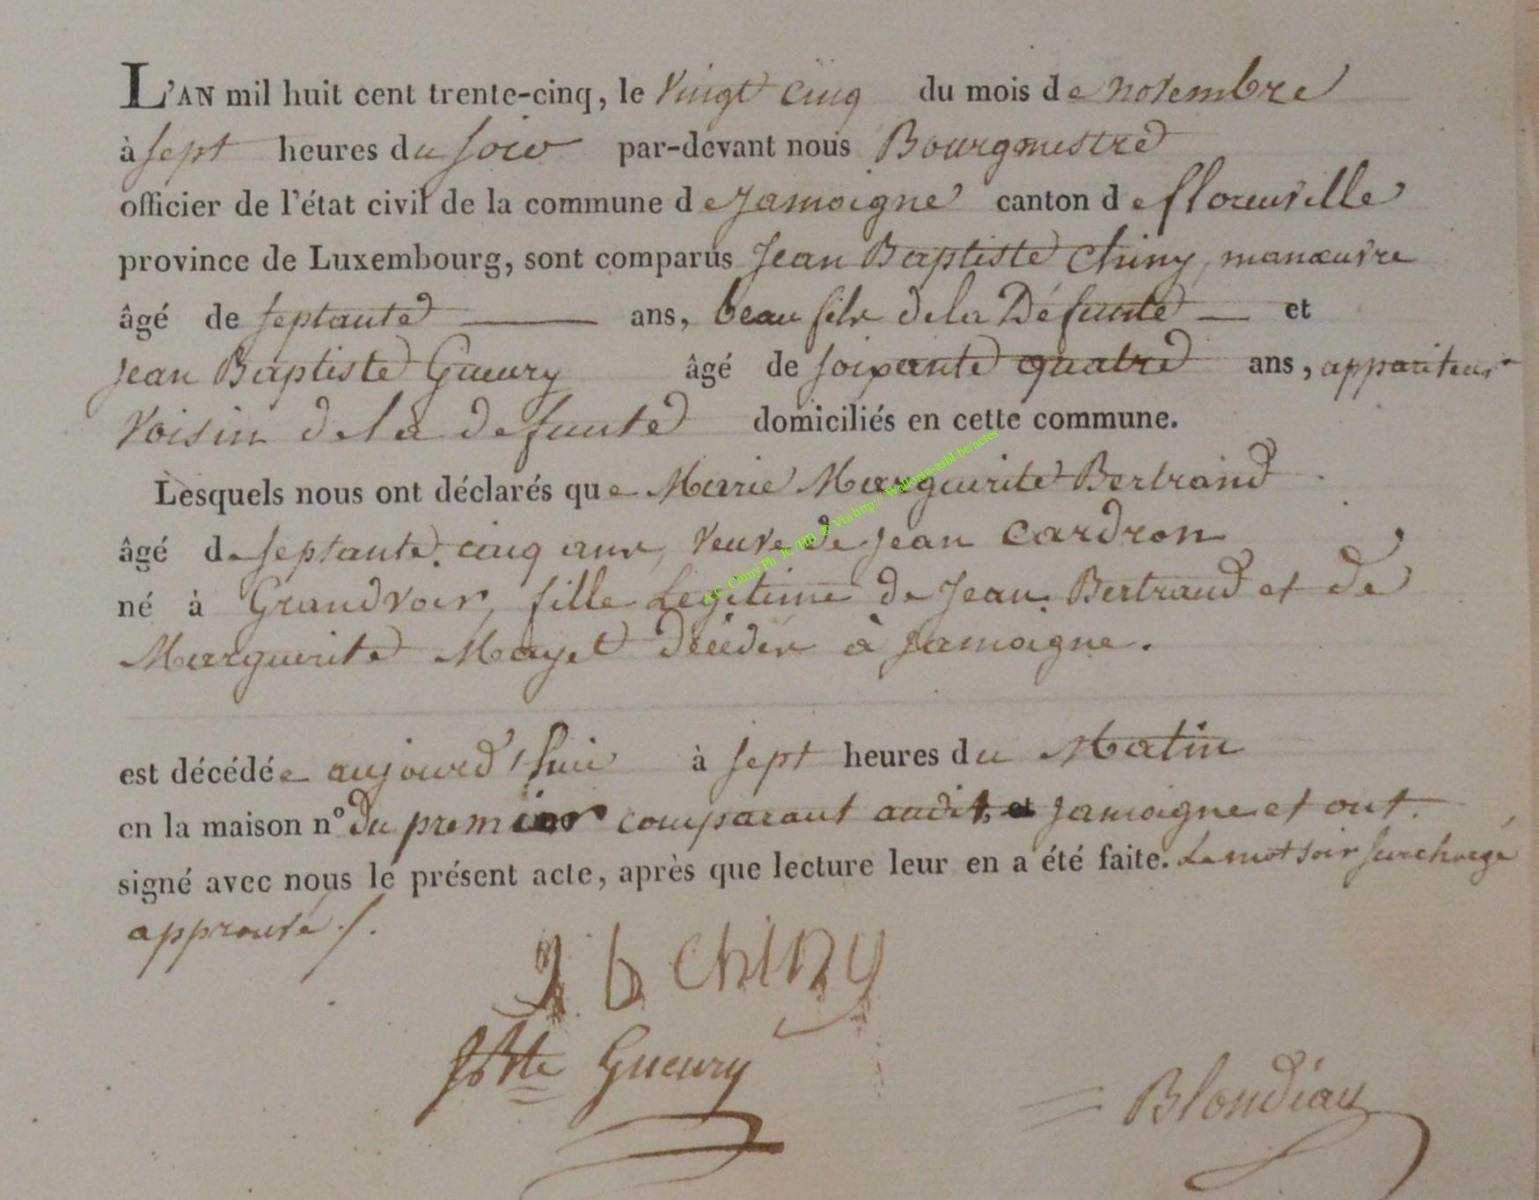 L'AN mil huit cent trente-cinq, le vingt cinq du mois de novembre
à sept heures du soir par-devant nous Bourgmestre
officier de l'état civil de la commune de Jamoigne canton de florenville
province de Luxembourg, sont comparus Jean Baptiste Chiny, manœuvre
âgé de septante ans, beau fils de la Défunte et
Jean Baptiste Gueury âgé de soixante quatre ans, appariteur
Voisin de la defunte domiciliés en cette commune.
Lesquels nous ont déclarés que Marie Marguerite Bertrand
âgé de septante cinq ans, veuve de Jean Cardron
né à Grandvoir, fille Légitime de Jean Bertrand et de
Marguerite Mayet décédée à Jamoigne.
est décédée aujourd'hui à sept heures du Matin
en la maison n° du premier comparant audit Jamoigne et ont
signé avec nous le présent acte, après que lecture leur en a été faite. Le mot soir surchargé
approuvé /.
J b chiny
JBte Gueury
Blondiau